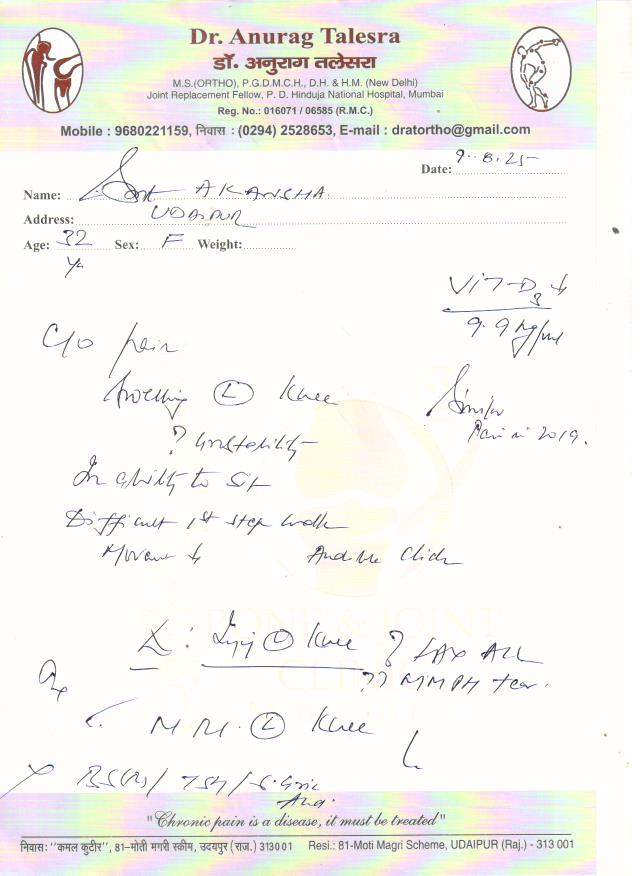 Dr. Anurag Talesra
डॉ. अनुराग तलेसरा
M.S.(ORTHO), P.G.D.M.C.H., D.H. & H.M. (New Delhi)
Joint Replacement Fellow, P. D. Hinduja National Hospital, Mumbai
Reg. No.: 016071 / 06585 (R.M.C.)
Mobile : 9680221159, निवास : (0294) 2528653, E-mail : dratortho@gmail.com
Date: 9.8.25
Name: AKANSHA
Address: UDAIPUR
Age: 32 Sex: F Weight:
Yr
VIT-D3 ↓
9.9 ng/ml
C/o pain
Swelling (L) Knee
Similar
Pain in 2019.
? Instability
Inability to sit
Difficult 1st step walk
Movement ↓ Audible Click
BONE & JOINT
CLINIC
Δ: Inj (L) Knee ? LAX ACL
?? MMPH tear.
Rx
MRI (L) Knee
BS(R) / TSH / S. Uric
Acid
"Chronic pain is a disease, it must be treated"
निवास: "कमल कुटीर", 81-मोती मगरी स्कीम, उदयपुर (राज.) 313001 Resi.: 81-Moti Magri Scheme, UDAIPUR (Raj.) - 313 001